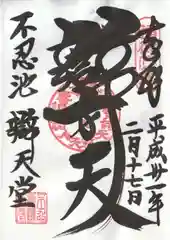 奉拝
平成卅一年
二月十七日
辯才天
不忍池
辯天堂